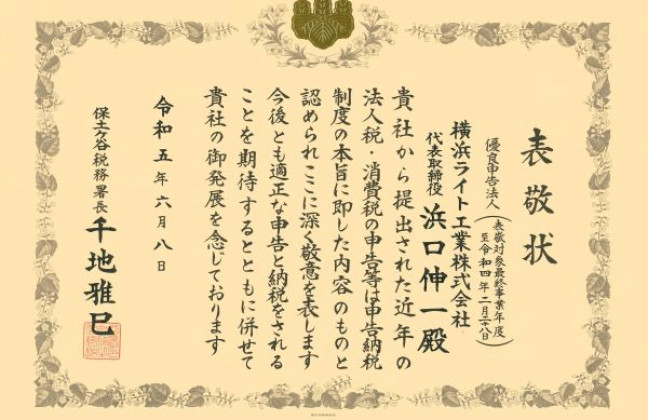 表敬状
優良申告法人
(表敬対象最終事業年度
至令和四年二月二十八日)
横浜ライト工業株式会社
代表取締役 浜口伸一殿
貴社から提出された近年の
法人税・消費税の申告等は申告納税
制度の本旨に即した内容のものと
認められここに深く敬意を表します
今後とも適正な申告と納税をされる
ことを期待するとともに併せて
貴社の御発展を念じております
令和五年六月八日
保土ケ谷税務署長 千地雅巳